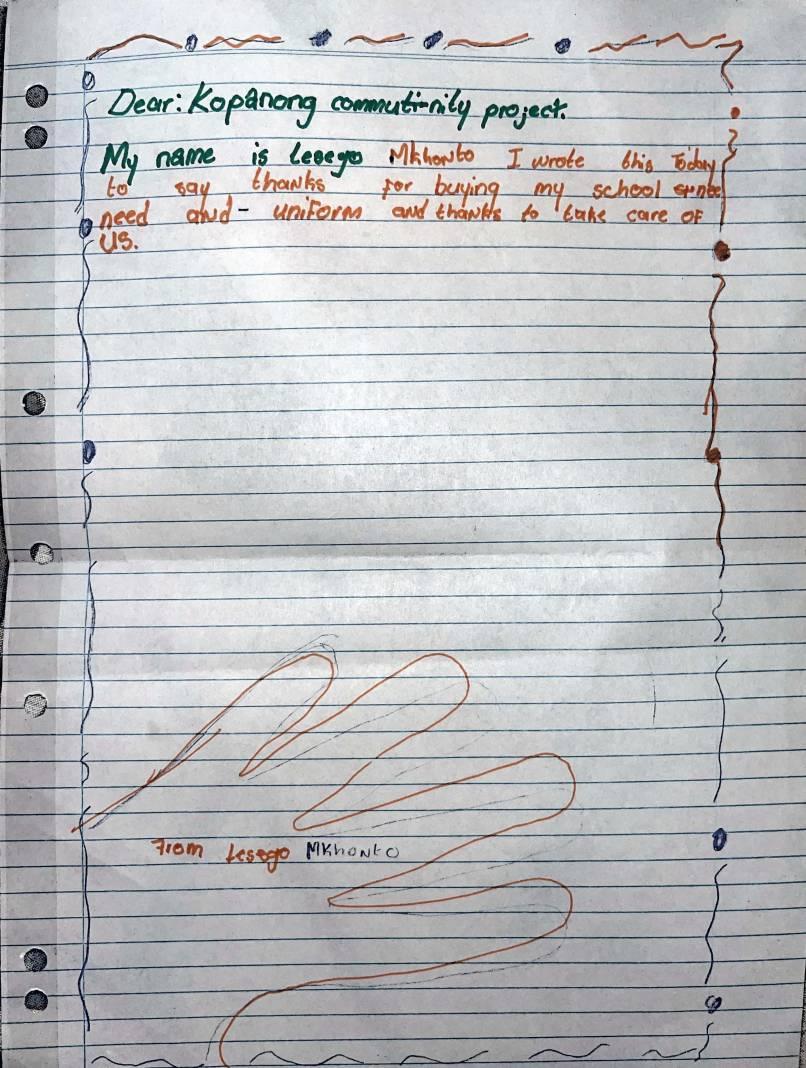 Dear: Kopanong commuti-nity project.
My name is Lesego Mkhonto I wrote this Today
to say thanks for buying my school
need and - uniform and thanks to take care of
us.
From Lesego Mkhonto